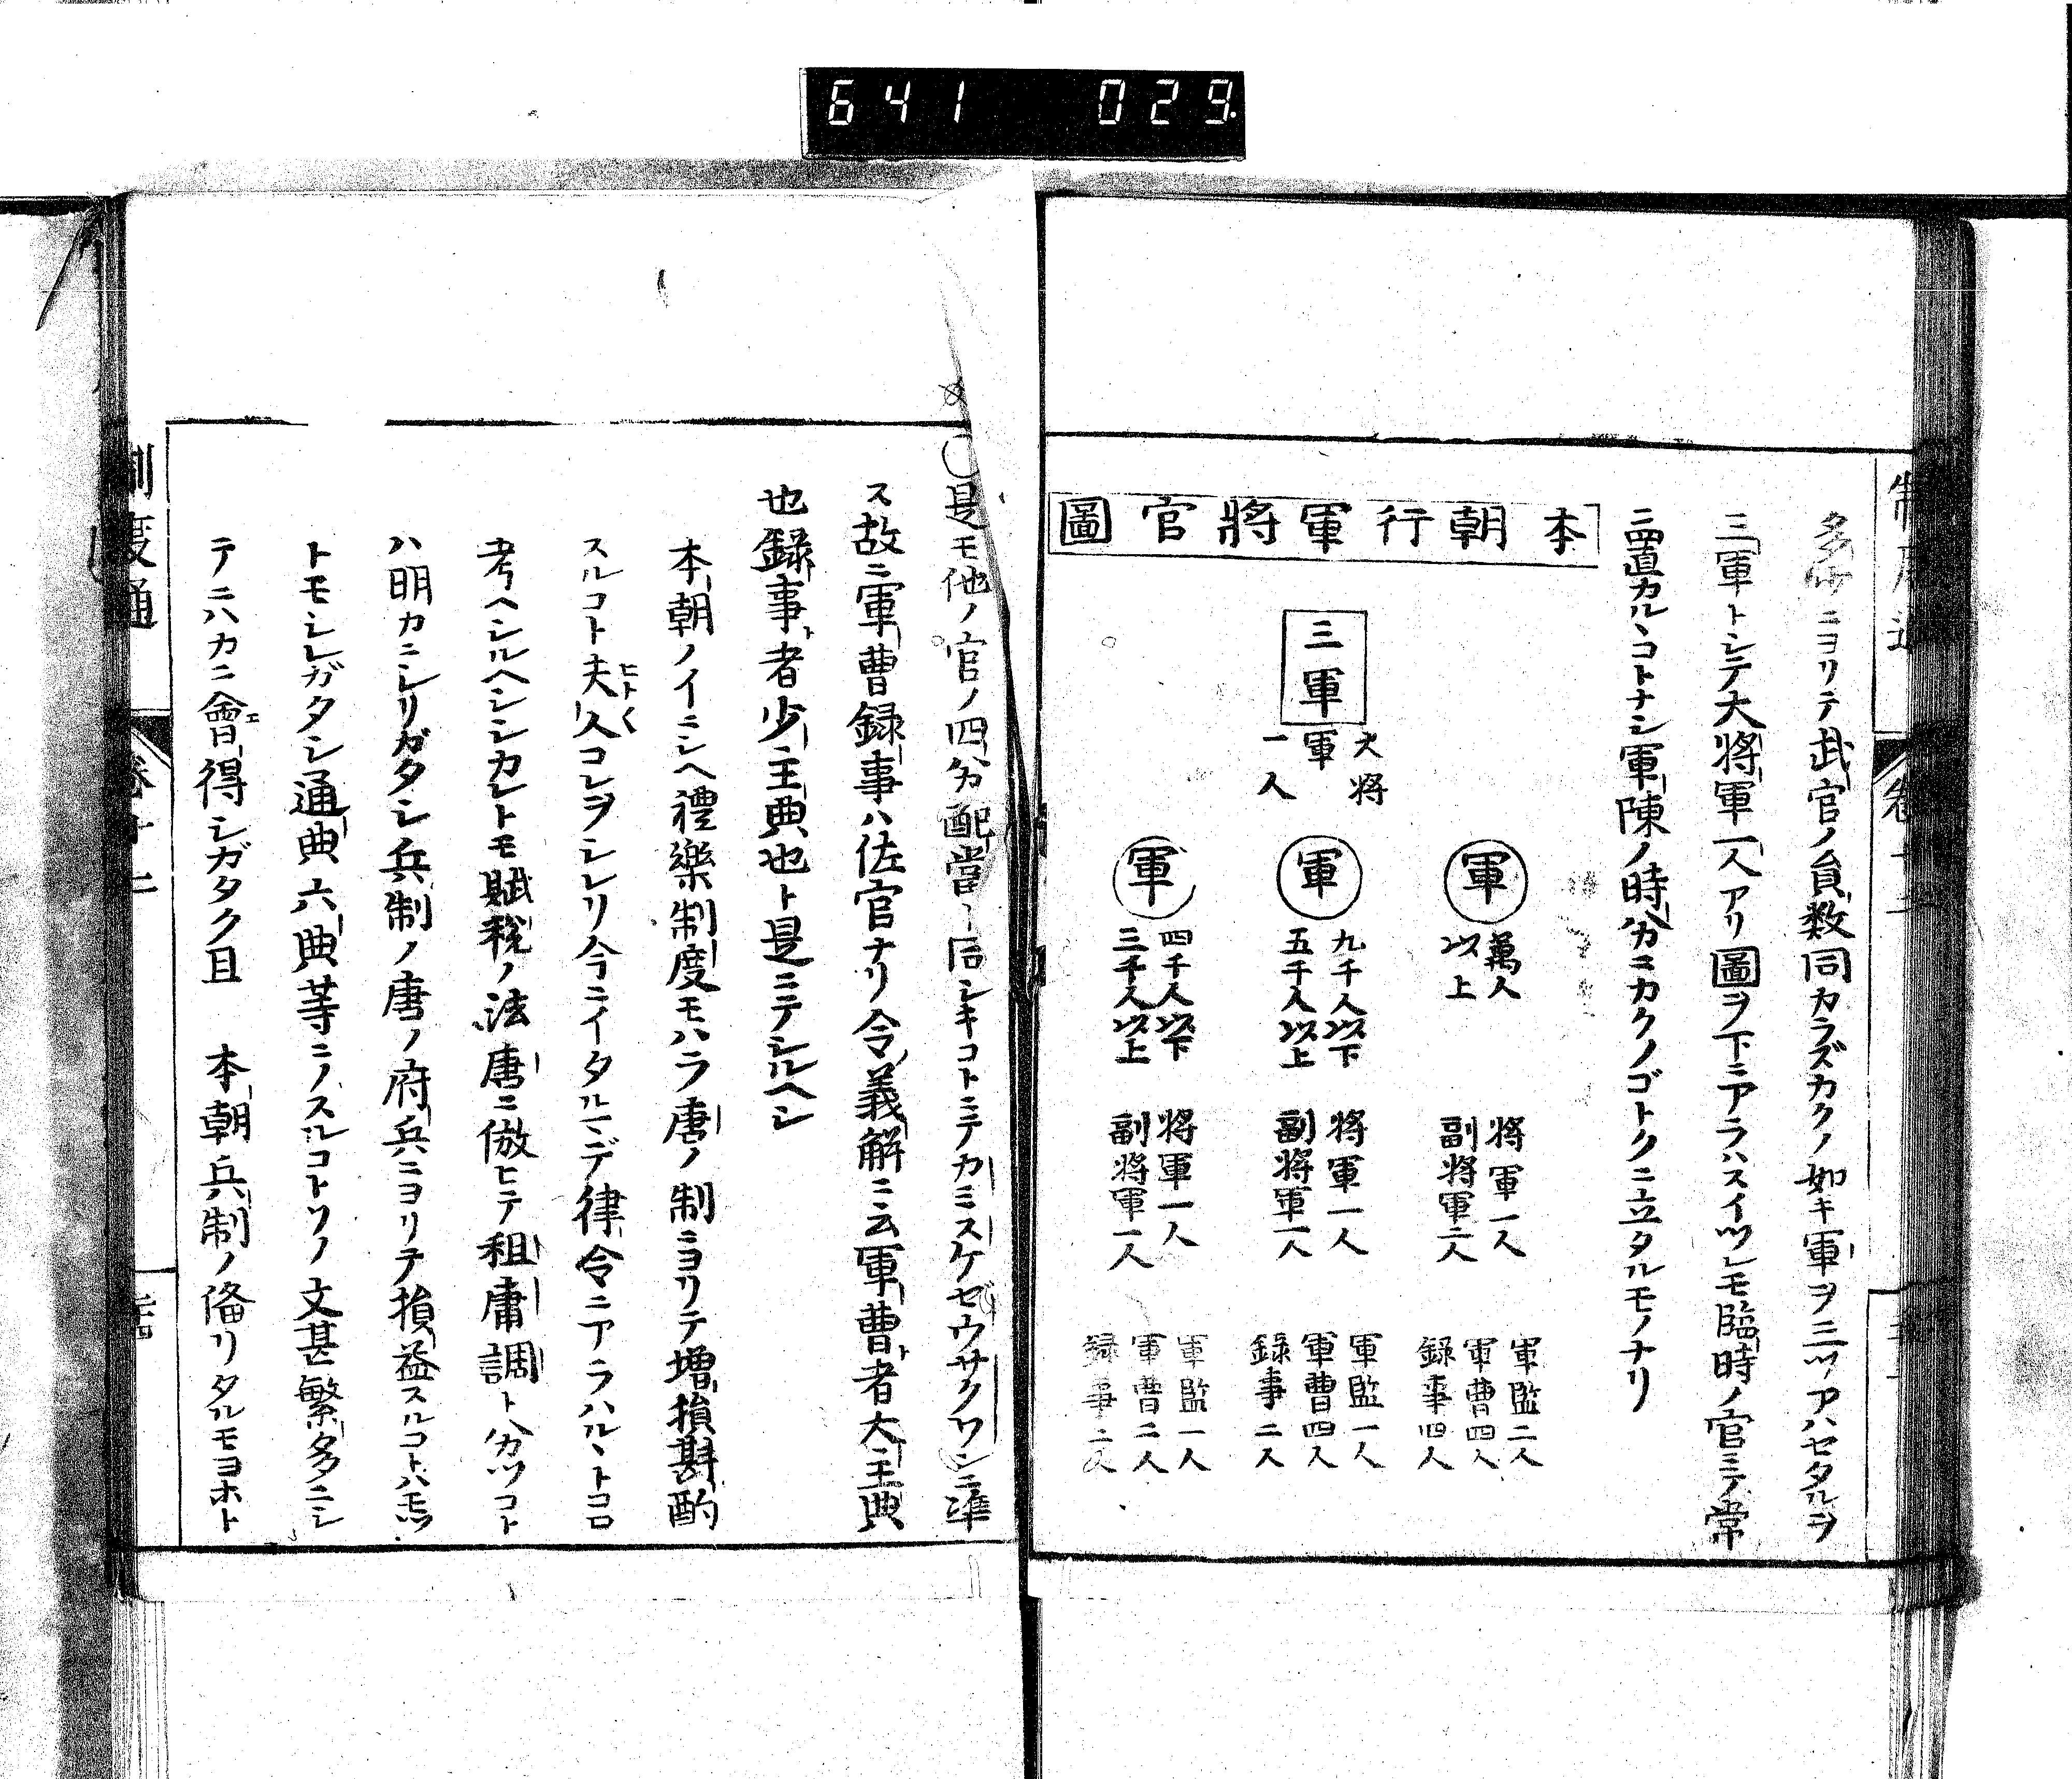 641 029
多少ニヨリテ武官ノ員数同カラズカクノ如キ軍ヲ三ツアハセタルヲ
三軍トシテ大将軍一人アリ圖ヲ下ニアラハスイツレモ臨時ノ官ニテ常
ニ置カルヽコトナシ軍陳ノ時分ニカクノゴトクニ立タルモノナリ
本朝行軍將官圖
三軍
大将
軍
一人
軍
萬人
以上
将軍一人
副将軍二人
軍監二人
軍曹四人
録事四人
軍
九千人以下
五千人以上
将軍一人
副将軍一人
軍監一人
軍曹四人
録事二人
軍
四千人以下
三千人以上
将軍一人
副将軍一人
軍監一人
軍曹二人
録事二人
○是モ他ノ官ノ四分配當ト同シキコトニテカミスケゼウサクワンニ準
ス故ニ軍曹録事ハ佐官ナリ令義解ニ云軍曹ト者大主典
也録事ト者少主典也ト是ニテシルヘシ
本朝ノイニシヘ禮樂制度モハラ唐ノ制ニヨリテ増損斟酌
スルコト夫久コレヲシレリ今ニイタルマデ律令ニアラハルヽトコロ
ヒトく
考ヘシルヘシシカレトモ賦税ノ法唐ニ倣ヒテ租庸調ト分ツコト
ハ明カニシリガタシ兵制ノ唐ノ府兵ニヨリテ損益スルコトハモツ
トモシレガタシ通典六典等ニノスルコトソノ文甚繁多ニシ
テニハカニ會得シガタク且 本朝兵制ノ俻リタルモヨホト
制度通 巻十二